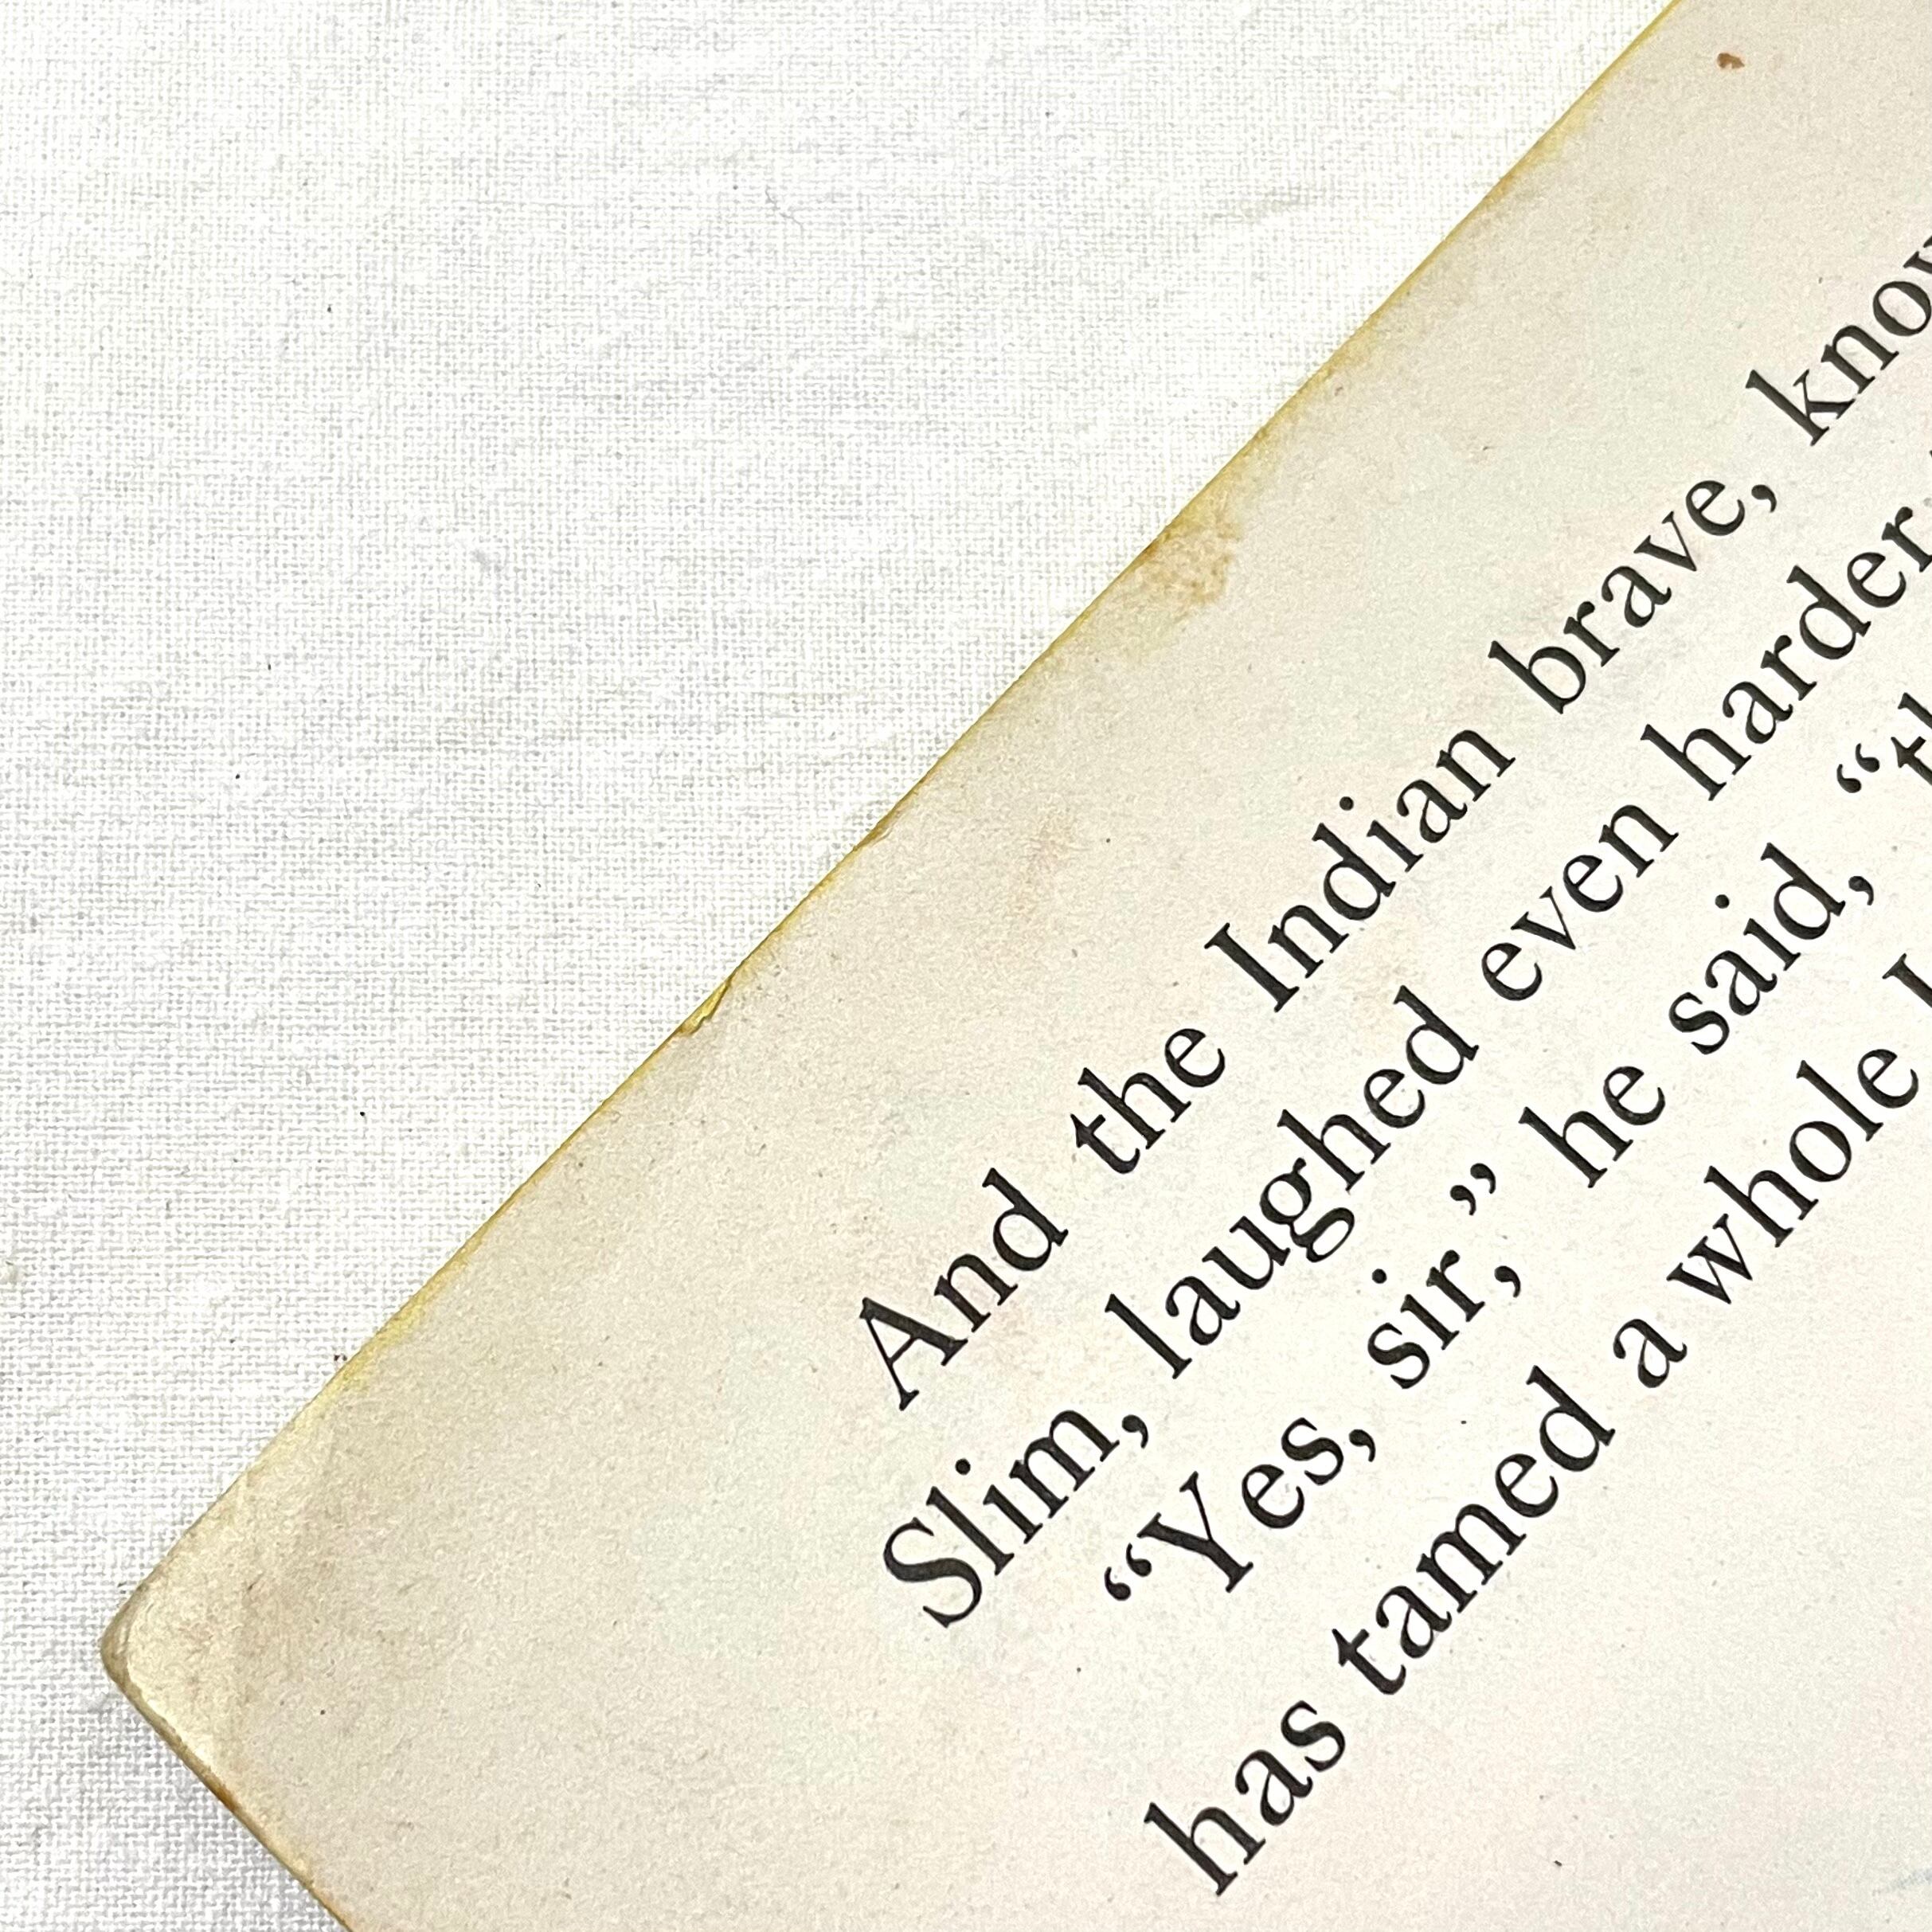 And the Indian brave,
Slim, laughed even harder
“Yes, sir,” he said,
has tamed a whole